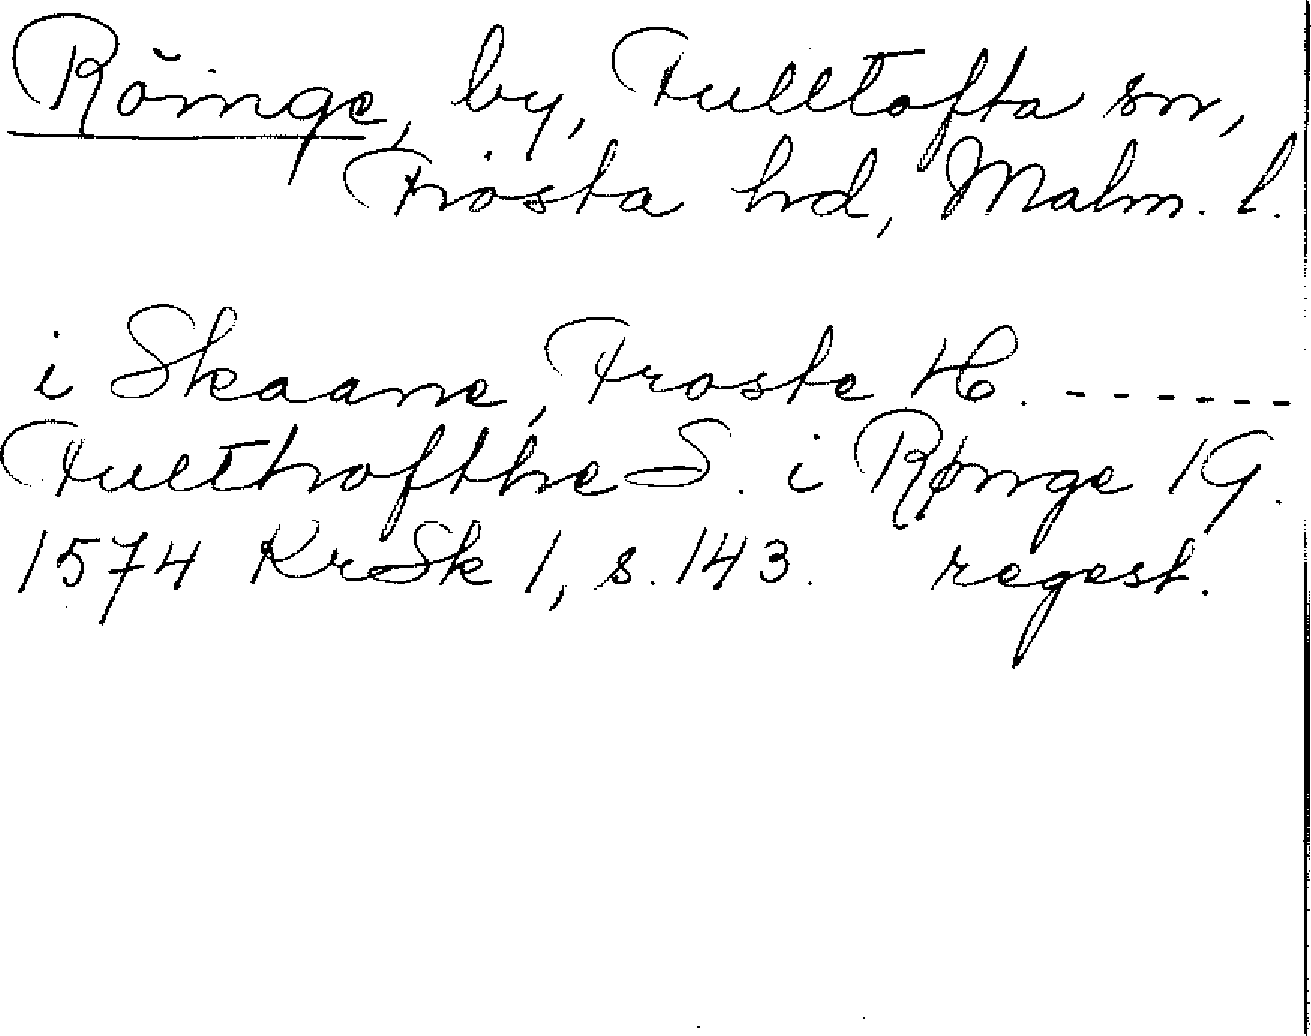 Röinge, by, Fulltofta sn,
Frosta hd, Malm. l.
i Skaane, Froste H. ------
Fullthofthe S. i Rønge 1 G.
1574 KrSk 1, s. 143. regest.